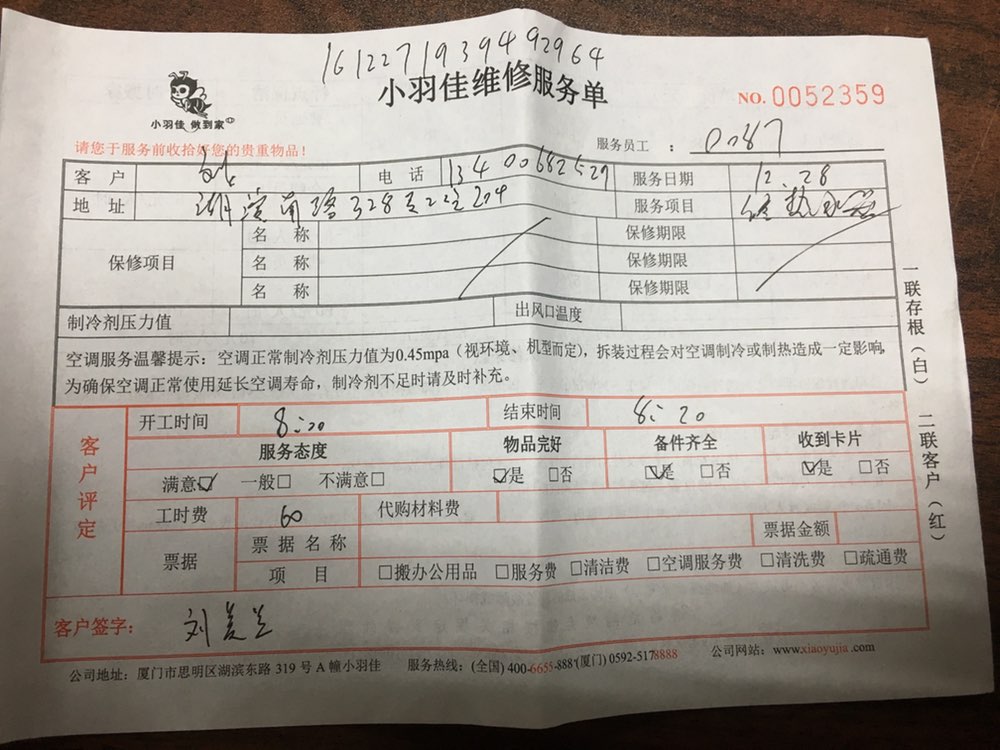 1612271939492964
小羽佳维修服务单
NO. 0052359
小羽佳 做到家
请您于服务前收拾好您的贵重物品！
服务员工 ： 0087
客户 电话 13400682529 服务日期 12.28
地址 湖滨南路328 204 服务项目 修热水
保修项目 名称 保修期限
名称 保修期限
名称 保修期限
制冷剂压力值 出风口温度
空调服务温馨提示：空调正常制冷剂压力值为0.45mpa（视环境、机型而定），拆装过程会对空调制冷或制热造成一定影响，
为确保空调正常使用延长空调寿命，制冷剂不足时请及时补充。
一联存根（白） 二联客户（红）
客户评定
开工时间 8:20 结束时间 8:20
服务态度 物品完好 备件齐全 收到卡片
满意☑ 一般□ 不满意□ ☑是 □否 ☑是 □否 ☑是 □否
工时费 60 代购材料费
票据 票据名称 票据金额
项目 □搬办公用品 □服务费 □清洁费 □空调服务费 □清洗费 □疏通费
客户签字： 刘美兰
公司地址：厦门市思明区湖滨东路 319 号 A 幢小羽佳 服务热线：(全国) 400-6655-888 (厦门) 0592-5178888 公司网站：www.xiaoyujia.com